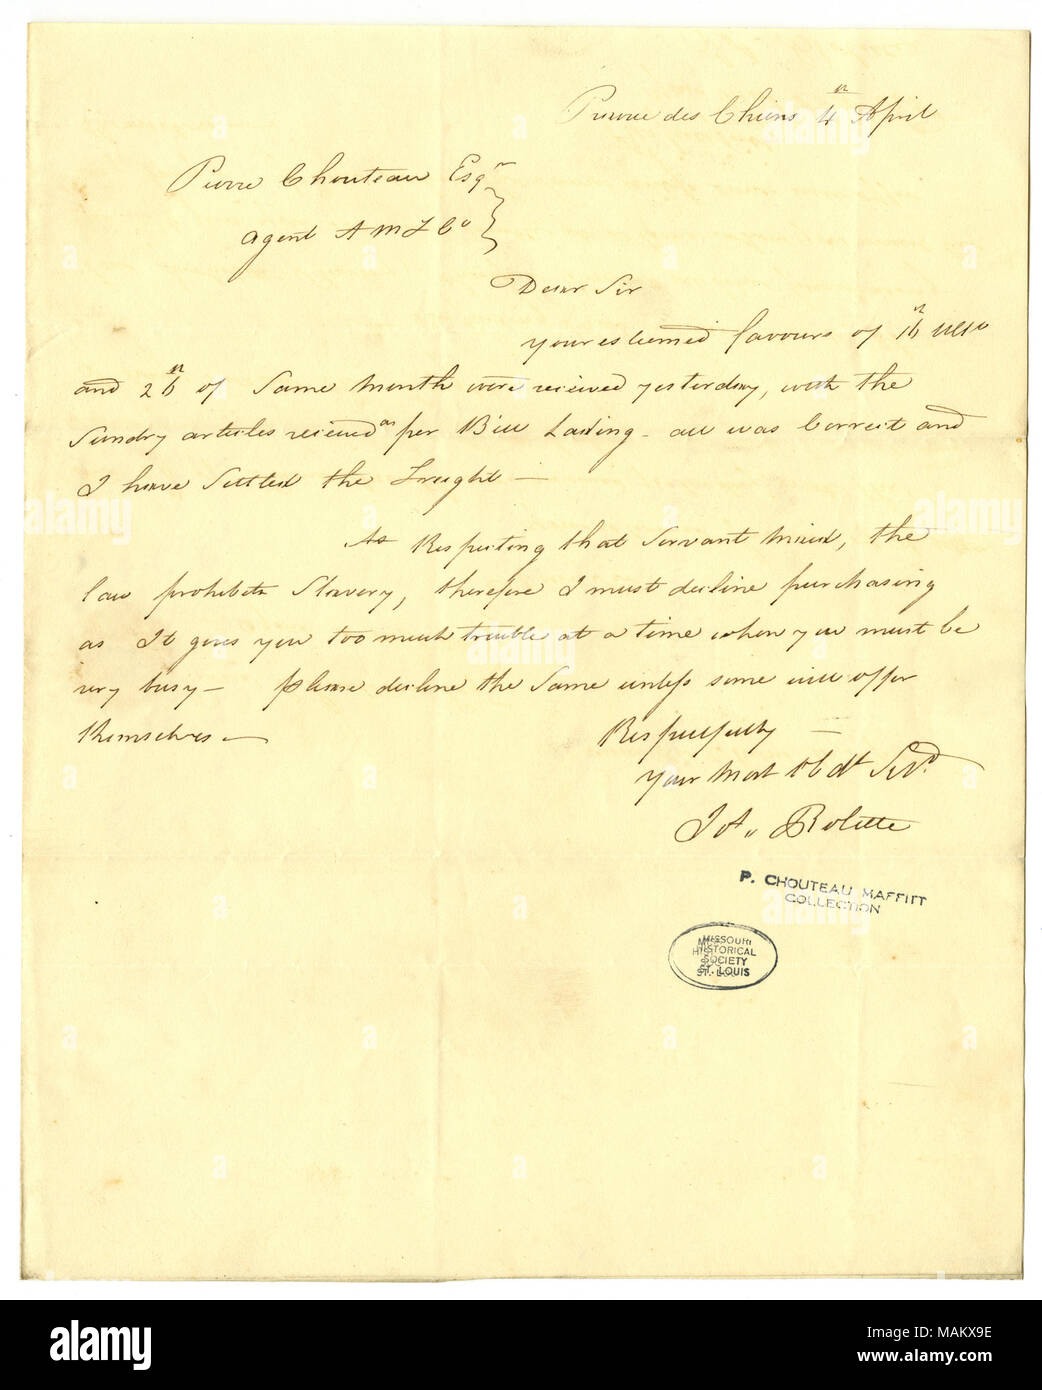 Prairie des Chiens 4th April
Pierre Chouteau Esqr
agent A M F Co
Dear Sir
your esteemed favours of 16th Ulto
and 26th of Same Month were recieved yesterday, with the
Sundry articles recieved as per Bill Lading - all was Correct and
I have Settled the Freight —
As Respecting that Servant Maid, the
law prohibits Slavery, therefore I must decline purchasing
as It gives you too much trouble at a time when you must be
very busy — please decline the Same unless some will offer
themselves —
Respectfully —
Your Most Obdt Servt
Jos. Rolette
P. CHOUTEAU MAFFITT
COLLECTION
MISSOURI
HISTORICAL
SOCIETY
ST. LOUIS
alamy
Image ID: MAKX9E
www.alamy.com